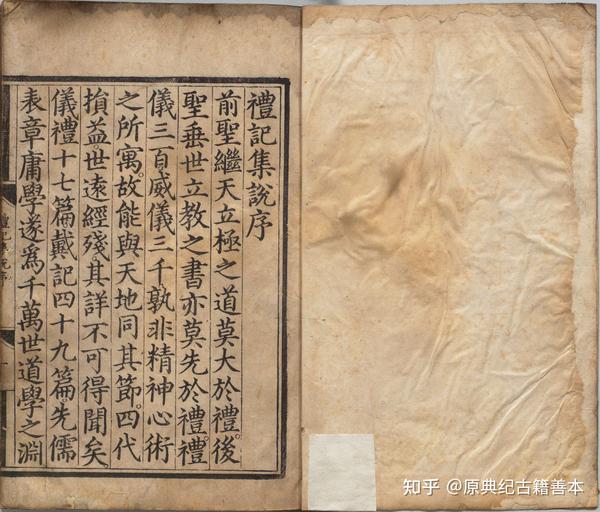 禮記集說序
前聖繼天立極之道莫大於禮。後
聖垂世立教之書亦莫先於禮。禮
儀三百威儀三千孰非精神心術
之所寓。故能與天地同其節。四代
損益。世遠經殘。其詳不可得聞矣
儀禮十七篇。戴記四十九篇。先儒
表章庸學。遂爲千萬世道學之淵
知乎 @原典纪古籍善本